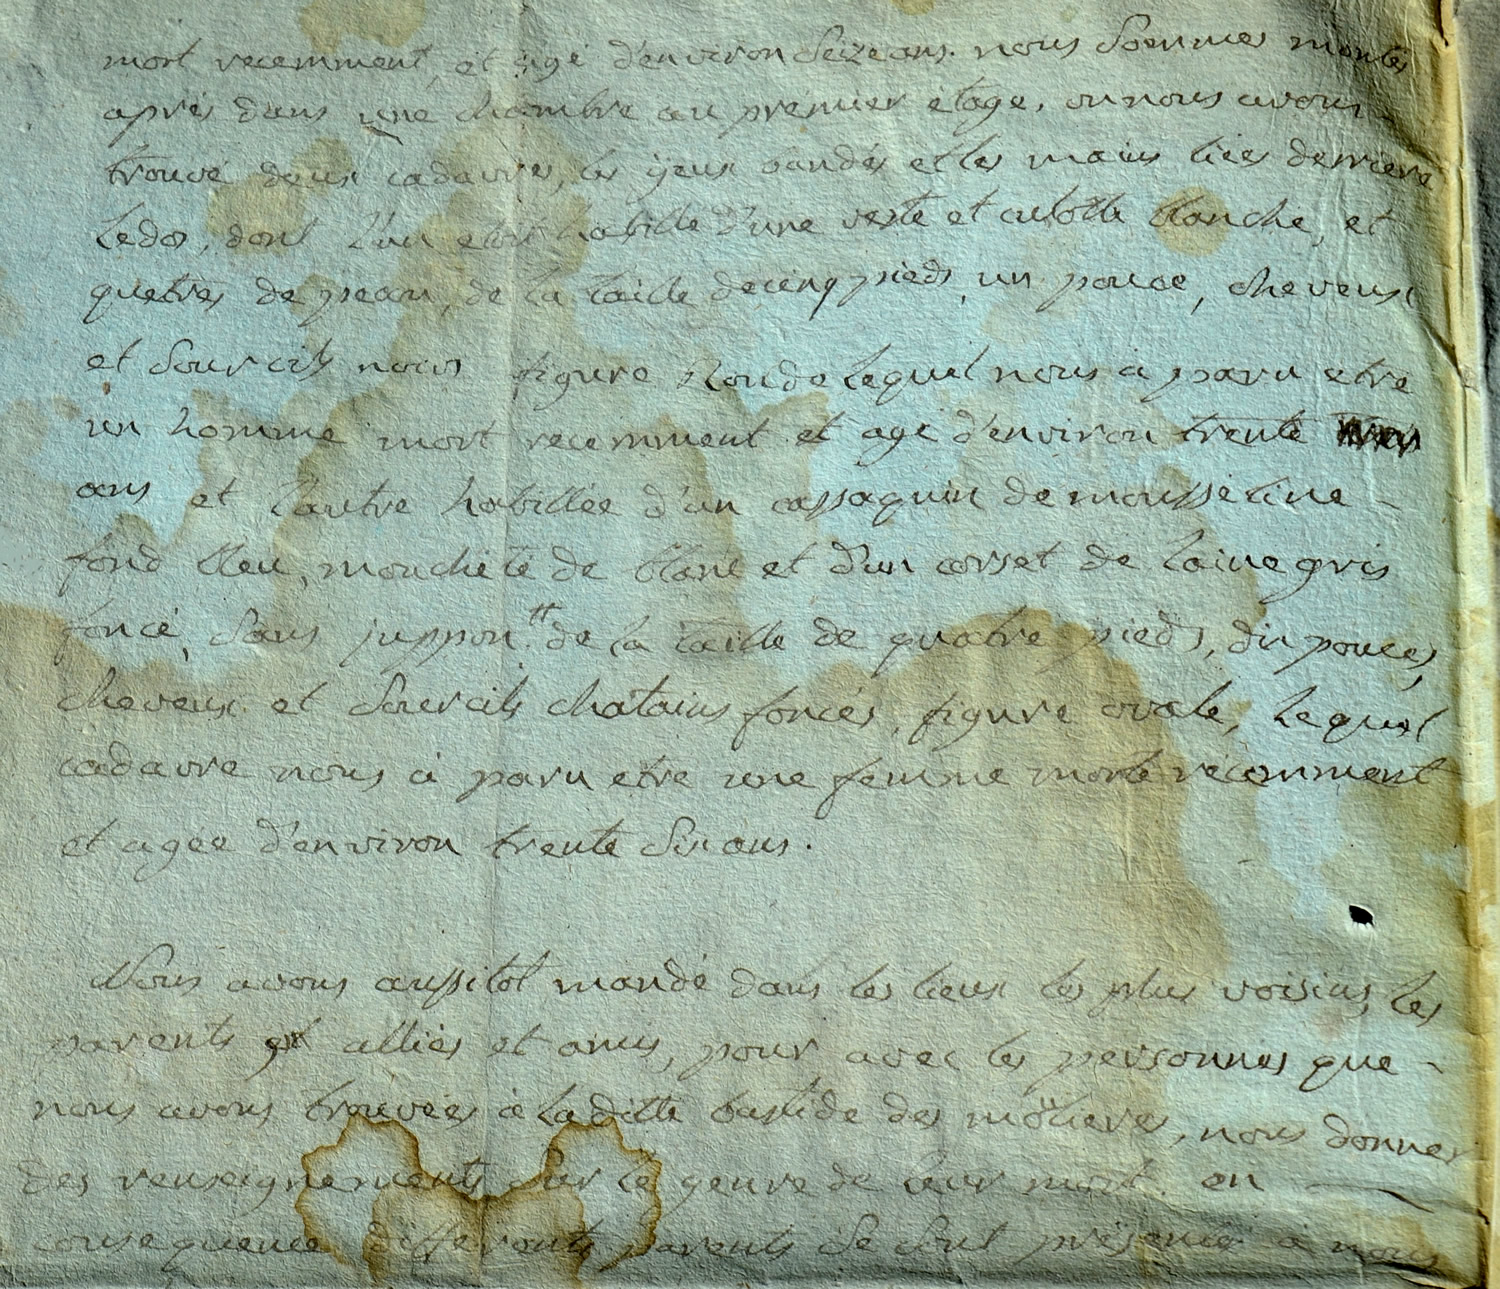 mort recemment, et agé d'environ Seize ans. nous Sommes montés
aprés dans une chambre au prémier étage, ou nous avons
trouvé deux cadavres, les ÿeux bandés et les mains liées derriere
Le dos, dont L'un etoit habillé d'une veste et culotte blanche, et
guetres de peau, de la taille de cinq pieds, un pouce, cheveux
et Sourcils noirs figure Ronde lequel nous a paru etre
un homme mort recemment et agé d'environ trente
ans et L'autre habillée d'un cassaquin de mousseline -
fond bleu, moucheté de blanc et d'un corset de laine gris
foncé, Sans juppon. de la taille de quatre pieds, dix pouces,
cheveux et Sourcils chatains foncés, figure ovale, Lequel
cadavre nous a paru etre une femme morte récemment
et agée d'environ trente Six ans.
Nous avons aussitot mandé dans les lieux les plus voisins, les
parents et alliés et amis, pour avec les personnes que -
nous avons trouvées à La ditte bastide des molieres, nous donner
des renseignements Sur le genre de leur mort. en
consequence differents parents Se Sont présentés à nous